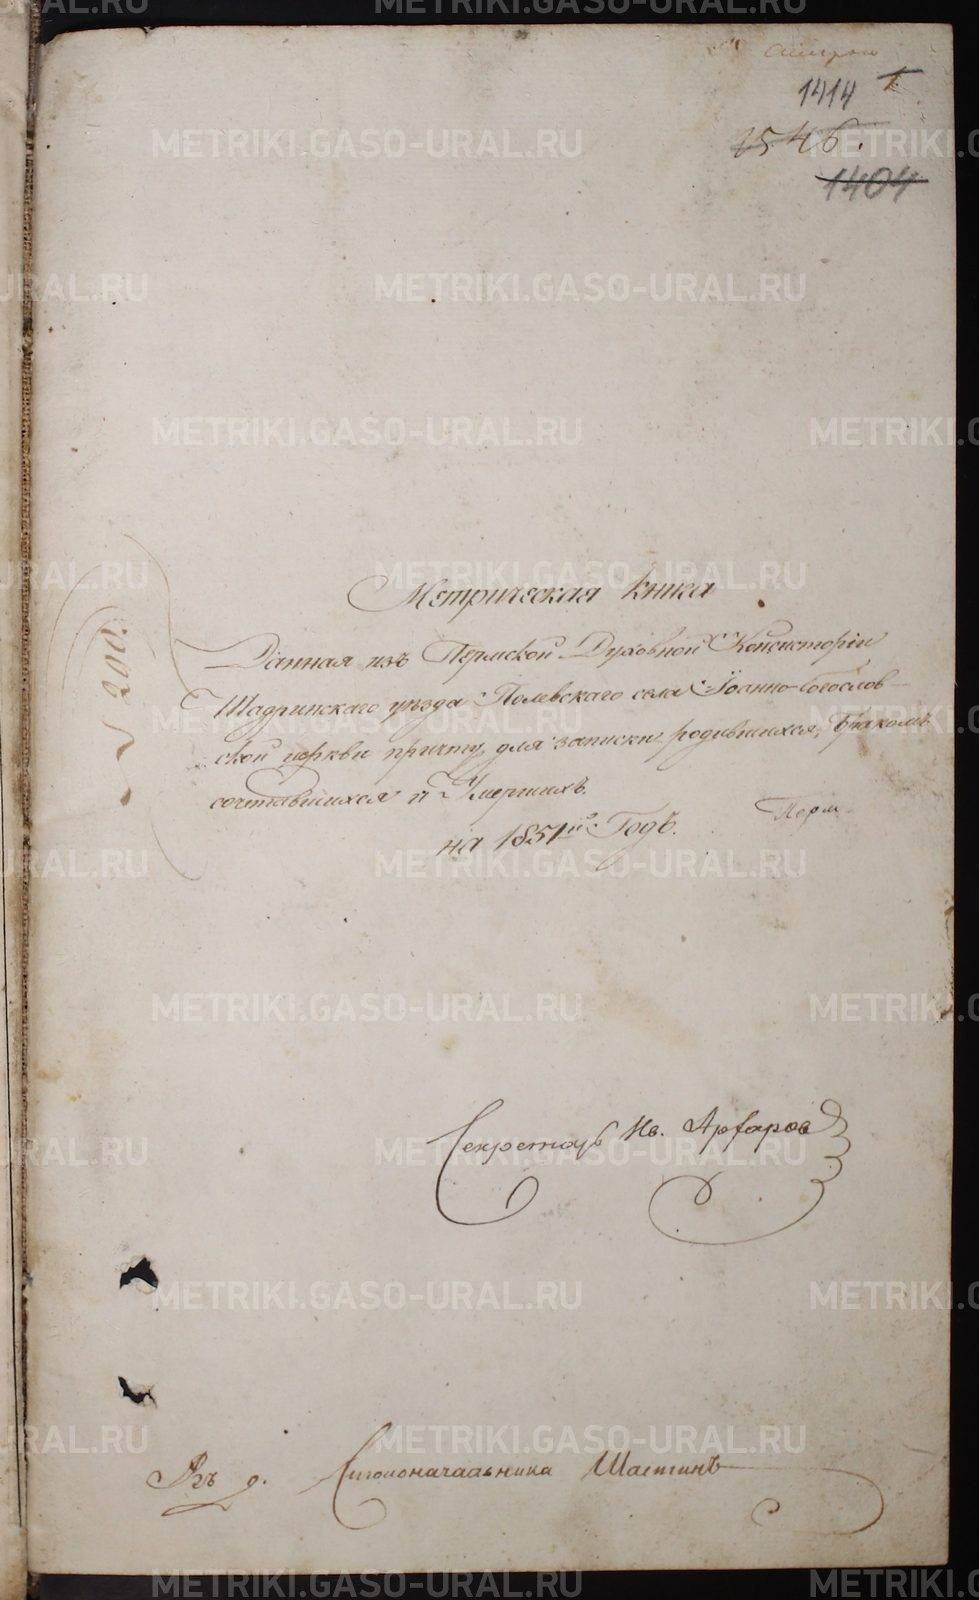 1414 1
1546.
1404
Метрическая книга
Данная изъ Пермской Духовной Консисторіи
Шадринскаго уѣзда Полевскаго села Іоанно-Богослов-
ской церкви причту, для записки родившихся, Бракомъ
сочетавшихся и Умершихъ.
на 1851й. Годъ.
Перм
№ 200.
Секретарь Ив.
Столоначальника
METRIKI.GASO-URAL.RU